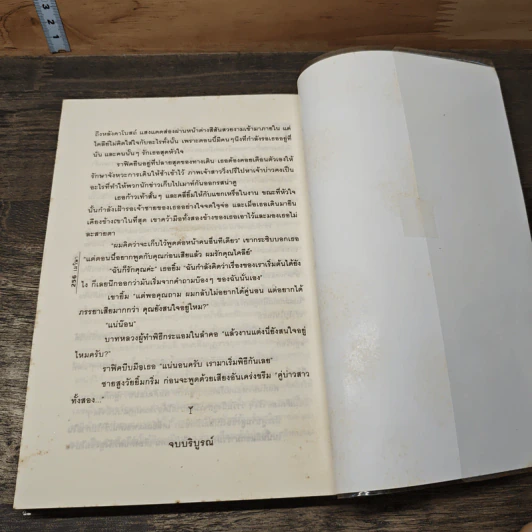 ถึงหลังคาโบสถ์ แสงแดดส่องผ่านหน้าต่างสีสันสวยงามเข้ามาภายใน แต่
ไคลี่ย์ไม่คิดใส่ใจกับอะไรทั้งนั้น เพราะตอนนี้มีคนๆนึงที่กำลังรอเธออยู่ที่
นั่น และคนนั้นๆ รักเธอสุดหัวใจ
ราฟิคยืนอยู่ที่ปลายสุดของทางเดิน เธอต้องคอยเตือนตัวเองให้
รักษาจังหวะการเดินให้ช้าเข้าไว้ ภาพเจ้าสาววิ่งปรี่ไปหาเจ้าบ่าวคงเป็น
อะไรที่ทำให้พวกนักข่าวเก็บไปเมาท์กันออกรสน่าดู
เธอก้าวเท้าสั้นๆ และคลี่ยิ้มให้กับแขกเหรื่อในงาน ขณะที่หัวใจ
นั้นกำลังเฝ้ารอเจ้าชายของเธออย่างใจจดใจจ่อ และเมื่อเธอเดินมายืน
เคียงข้างเขาในที่สุด เขาคว้ามือทั้งสองข้างของเธอเอาไว้และมองเธอไม่
ละสายตา
"ผมคิดว่าจะเก็บไว้พูดต่อหน้าคนอื่นทีเดียว" เขากระซิบบอกเธอ
"แต่ตอนนี้อยากพูดกับคุณก่อนเสียแล้ว ผมรักคุณไคลี่ย์"
"ฉันก็รักคุณค่ะ" เธอยิ้ม "ฉันกำลังคิดว่าเรื่องของเราเริ่มต้นได้ยัง
ไง ก็เลยนึกออกว่ามันเริ่มจากคำถามบ๊องๆ ของฉันนั่นเอง"
เขายิ้ม "แต่พอคุณถาม ผมกลับไม่อยากได้คู่นอน แต่อยากได้
ภรรยาเสียมากกว่า คุณยังสนใจอยู่ไหม?"
"แน่น๊อน"
บาทหลวงผู้ทำพิธีกระแอมในลำคอ "แล้วงานแต่งนี่ยังสนใจอยู่
ไหมครับ?"
ราฟิคบีบมือเธอ "แน่นอนครับ เรามาเริ่มพิธีกันเลย"
ชายสูงวัยยิ้มกริ่ม ก่อนจะพูดด้วยเสียงอันเคร่งขรึม "คู่บ่าวสาว
ทั้งสอง..."
จบบริบูรณ์
256
3
2
1